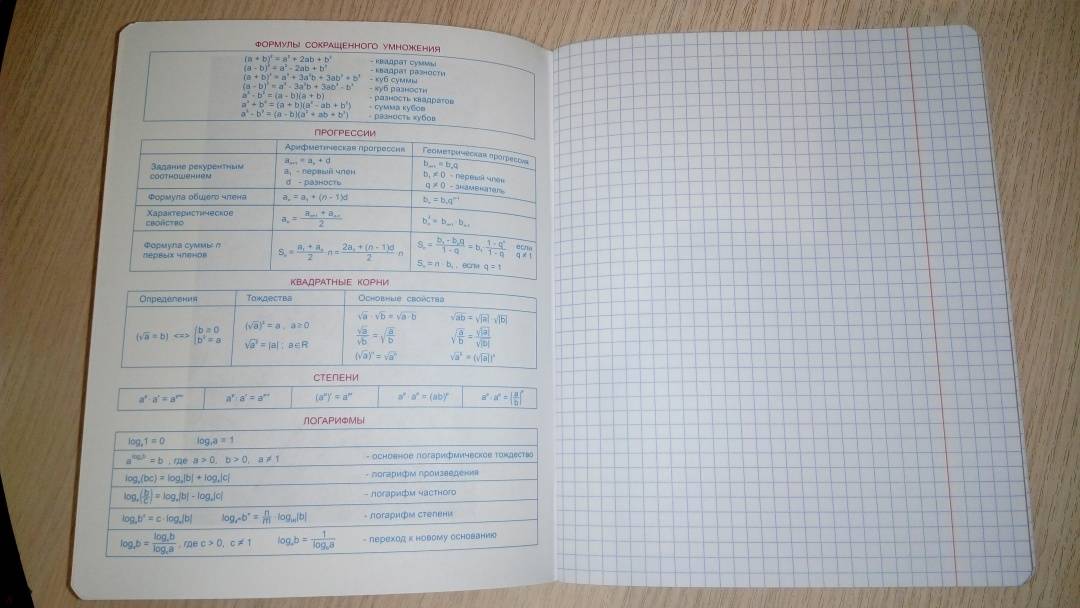 ФОРМУЛЫ СОКРАЩЕННОГО УМНОЖЕНИЯ
(a + b)² = a² + 2ab + b² - квадрат суммы
(a - b)² = a² - 2ab + b² - квадрат разности
(a + b)³ = a³ + 3a²b + 3ab² + b³ - куб суммы
(a - b)³ = a³ - 3a²b + 3ab² - b³ - куб разности
a² - b² = (a - b)(a + b) - разность квадратов
a³ + b³ = (a + b)(a² - ab + b²) - сумма кубов
a³ - b³ = (a - b)(a² + ab + b²) - разность кубов
ПРОГРЕССИИ
Арифметическая прогрессия Геометрическая прогрессия
Задание рекурентным соотношением
aₙ₊₁ = aₙ + d
a₁ - первый член
d - разность
bₙ₊₁ = bₙq
b₁ ≠ 0 - первый член
q ≠ 0 - знаменатель
Формула общего члена aₙ = a₁ + (n - 1)d bₙ = b₁qⁿ⁻¹
Характеристическое свойство
aₙ = (aₙ₊₁ + aₙ₋₁)/2
bₙ² = bₙ₊₁ · bₙ₋₁
Формула суммы n первых членов
Sₙ = (a₁ + aₙ)/2 · n = (2a₁ + (n - 1)d)/2 · n
Sₙ = (b₁ - bₙq)/(1 - q) = b₁ (1 - qⁿ)/(1 - q) если q ≠ 1
Sₙ = n · b₁ , если q = 1
КВАДРАТНЫЕ КОРНИ
Определения Тождества Основные свойства
(√a = b) <=> {b ≥ 0 b² = a
(√a)² = a , a ≥ 0
√a² = |a| ; a∈R
√a · √b = √a · b √ab = √|a| · √|b|
√a/√b = √(a/b) √(a/b) = √|a|/√|b|
(√a)ⁿ = √aⁿ √aⁿ = (√|a|)ⁿ
СТЕПЕНИ
ЛОГАРИФМЫ
logₐ1 = 0 logₐa = 1
a^(logₐb) = b , где a > 0, b > 0, a ≠ 1 - основное логарифмическое тождество
logₐ(bc) = logₐ|b| + logₐ|c| - логарифм произведения
logₐ(b/c) = logₐ|b| - logₐ|c| - логарифм частного
logₐbᶜ = c · logₐ|b| - логарифм степени
logₐb = log꜀b/log꜀a , где c > 0, c ≠ 1 logₐb = 1/log_b a - переход к новому основанию